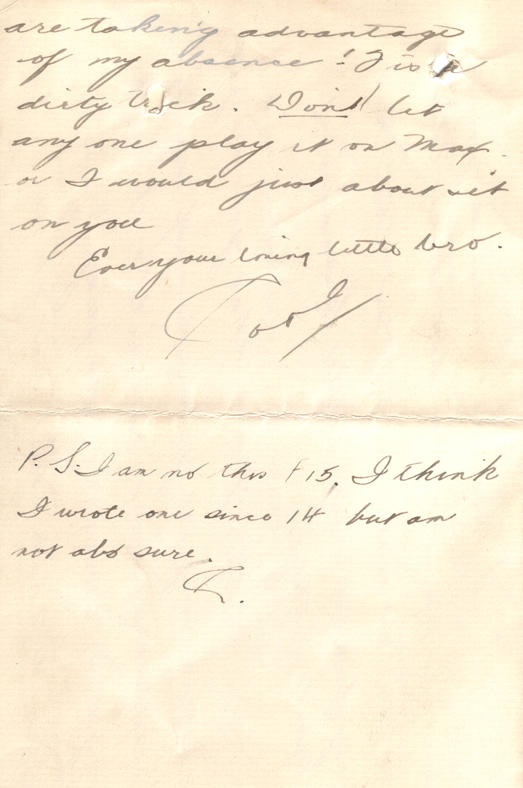 are taking advantage
of my absence! Tis a
dirty trick. Don't let
any one play it on Max.
or I would just about sit
on you
Ever your loving little bro.

P.S. I am no this #15. I think
I wrote one since 14 but am
not abs sure.